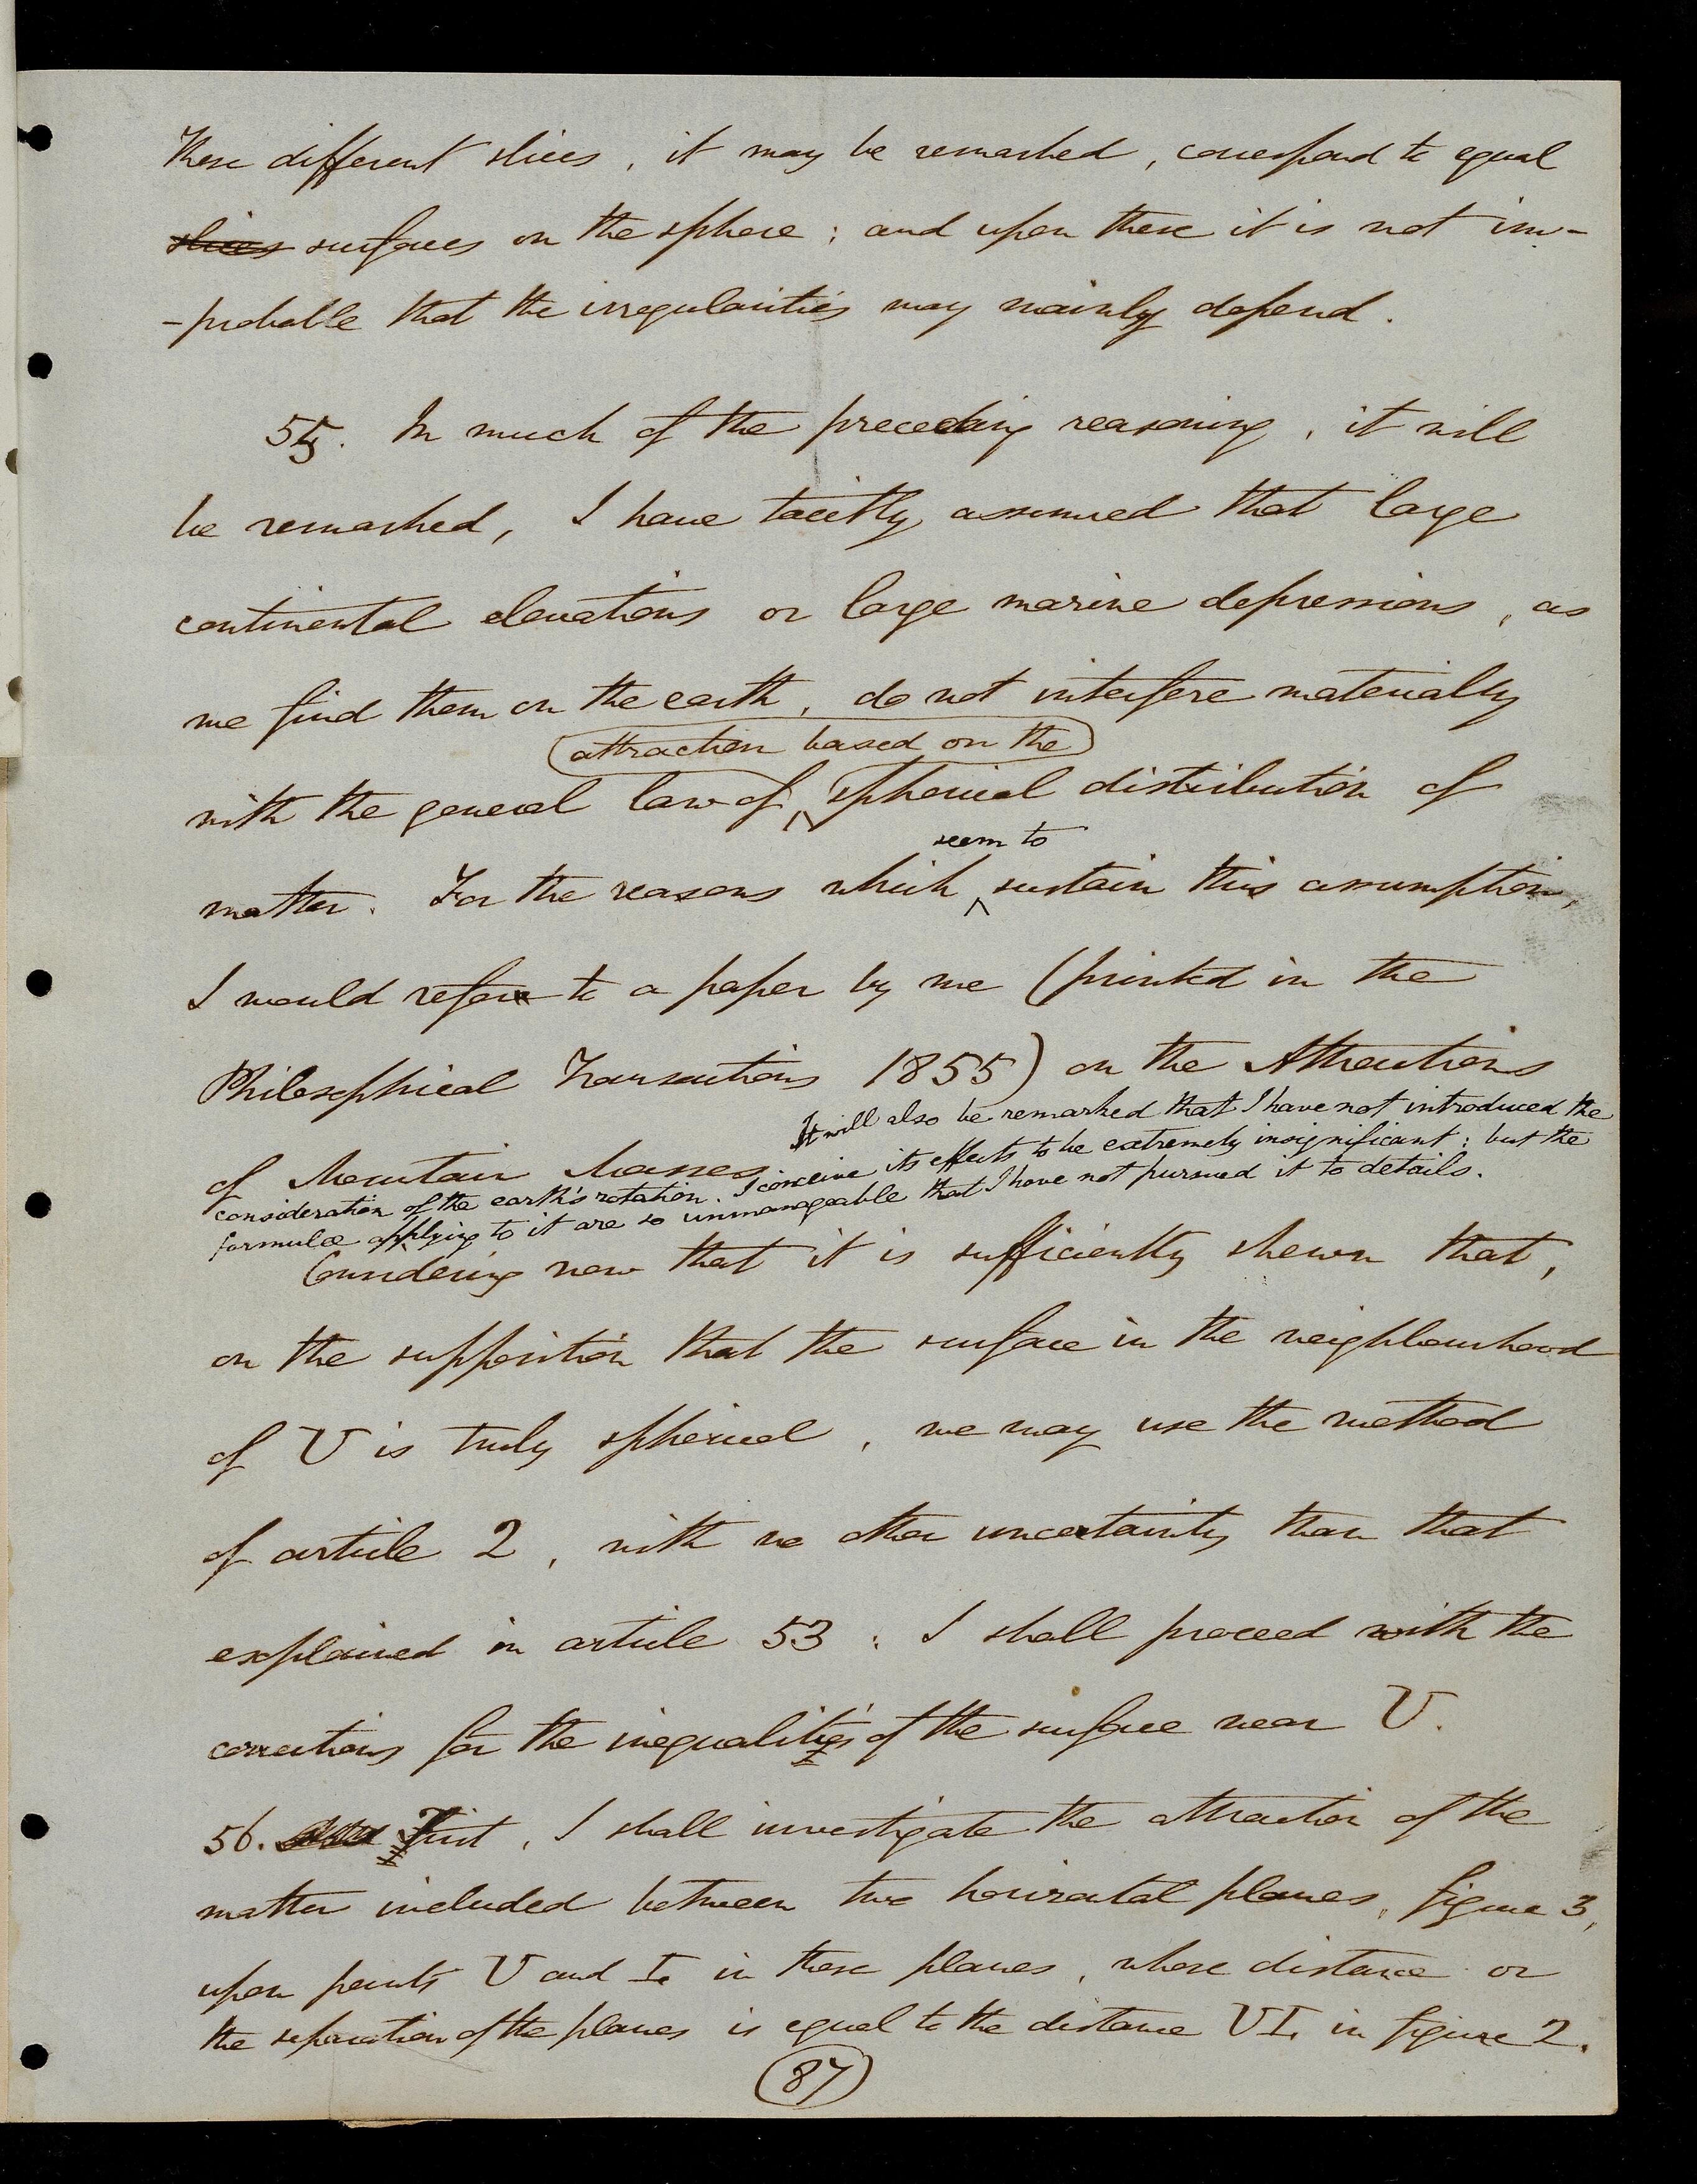 These different slices, it may be remarked, correspond to equal
slices surfaces on the sphere: and upon these it is not im-
-probable that the irregularities may mainly depend.
55. In much of the preceding reasoning, it will
be remarked, I have tacitly assumed that large
continental elevations or large marine depressions, as
we find them on the earth, do not interfere materially
attraction based on the
with the general law of spherical distribution of
seem to
matter. For the reasons which sustain this assumption,
I would refer to a paper by me (printed in the
Philosophical Transactions 1855) on the Attractions
of Mountain Masses.
It will also be remarked that I have not introduced the
consideration of the earth's rotation. I conceive its effects to be extremely insignificant: but the
formulæ applying to it are so unmanageable that I have not pursued it to details.
Considering now that it is sufficiently shewn that,
on the supposition that the surface in the neighbourhood
of U is truly spherical, we may use the method
of article 2, with no other uncertainty than that
explained in article 53: I shall proceed with the
corrections for the inequalities of the surface near U.
56. First, I shall investigate the attraction of the
matter included between two horizontal planes, figure 3,
upon points U and I, in these planes, whose distance or
the separation of the planes is equal to the distance UI, in figure 2.
87